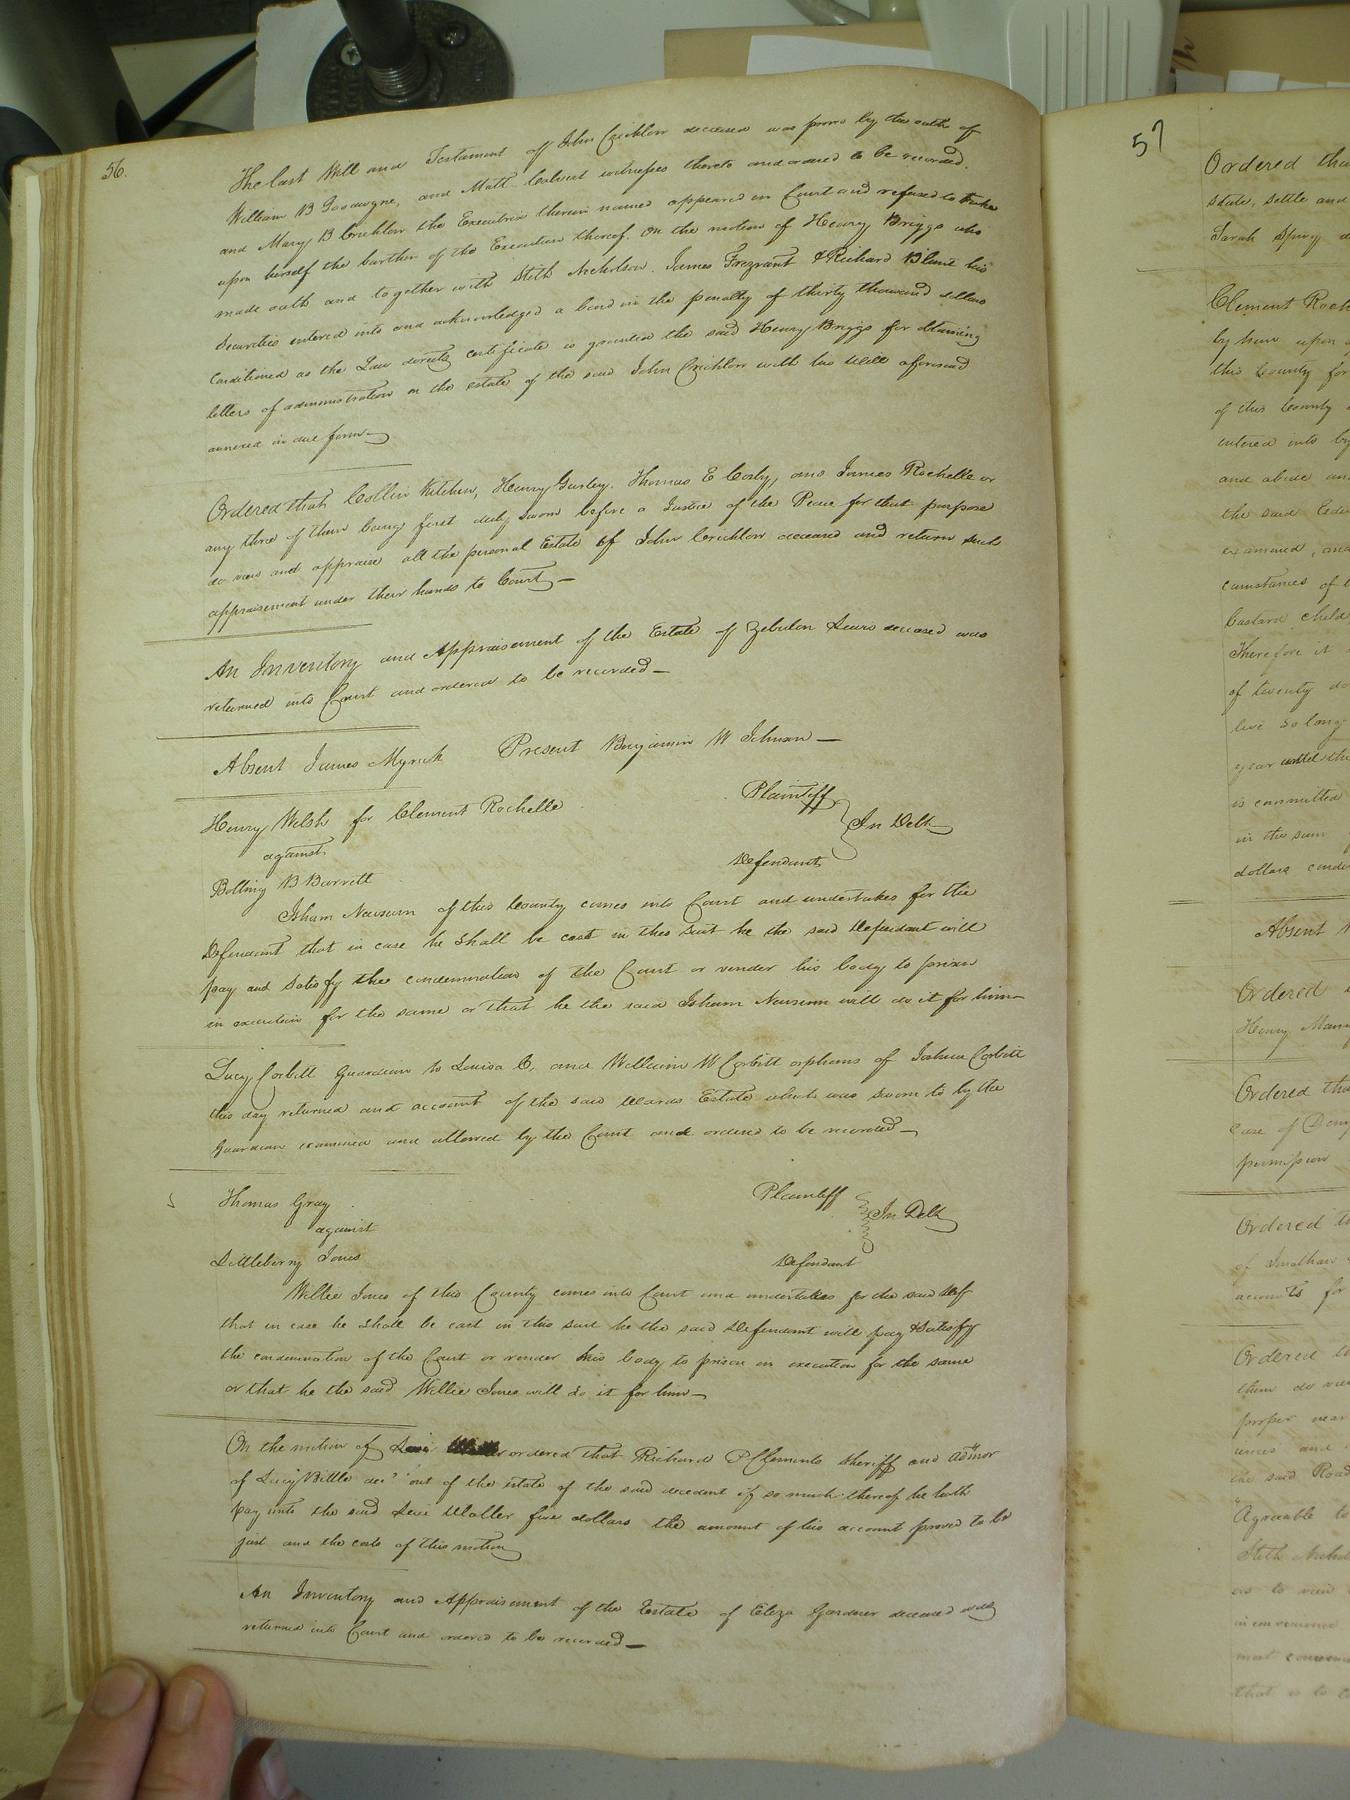 56.
The last Will and Testament of John Crichlow deceased was proved by the oath of
William B Goodwyne, and Matt Calvert witnesses thereto and ordered to be recorded.
and Mary B Crichlow the Executrix therein named appeared in Court and refused to take
upon herself the burthen of the Execution thereof. On the motion of Henry Briggs who
made oath and together with Stith Nicholson, James Frezvant & Richard Blunt his
Securities entered into and acknowledged a bond in the penalty of thirty thousand dollars
Conditioned as the Law directs certificate is granted the said Henry Briggs for obtaining
letters of administration on the estate of the said John Crichlow with his Will aforesaid
annexed in due form—
Ordered that Collin Kitchen, Henry Gurley, Thomas E Cosby, and James Rochelle or
any three of them being first duly sworn before a Justice of the Peace for that purpose
do view and appraise all the personal Estate of John Crichlow deceased and return such
appraisement under their hands to Court—
An Inventory and Appraisement of the Estate of Zebulon Lewis deceased was
returned into Court and ordered to be recorded—
Absent James Myrick Present Benjamin W Johnson—
Henry Welsh for Clement Rochelle Plaintiff
against In Debt
Bolling B Barrett Defendant
Isham Newsum of this County comes into Court and undertakes for the
Defendant that in case he shall be cast in this suit he the said Defendant will
pay and satisfy the condemnation of the Court or render his body to prison
in execution for the same or that he the said Isham Newsum will do it for him—
Lucy Corbitt Guardian to Louisa C, and William W Corbitt orphans of Joshua Corbitt
this day returned and account of the said Wards Estate which was sworn to by the
Guardian examined and allowed by the Court and ordered to be recorded—
Thomas Gray Plaintiff
against In Debt
Littleberry Jones Defendant
Willie Jones of this County comes into Court and undertakes for the said Deft
that in case he shall be cast in this suit he the said Defendant will pay & satisfy
the condemnation of the Court or render his body to prison in execution for the same
or that he the said Willie Jones will do it for him—
On the motion of Levi ordered that Richard P Clements Sheriff and admor
of Lucy Bittle decd out of the estate of the said decedent if so much thereof he hath
pay unto the said Levi Waller five dollars the amount of his account proved to be
just and the costs of this motion
An Inventory and Appraisement of the Estate of Eliza Gardner deceased was
returned into Court and ordered to be recorded—
57
Ordered tha
State, settle and
Sarah Spivy
Clement Roch
by him upon
this County for
of this County
entered into by
and abide and
the said
examined, and
cumstances of
bastard child
Therefore it
of twenty do
live so long
year until the
is committed
in the sum
dollars condi
Absent
Ordered
Henry Mann
Ordered tha
case of
permission
Ordered
of Jonathan
accounts for
Ordered
them do view
proper
the said Road
Agreeable to
Stith Nichol
ers to view
inconvenience
most convenie
that is to